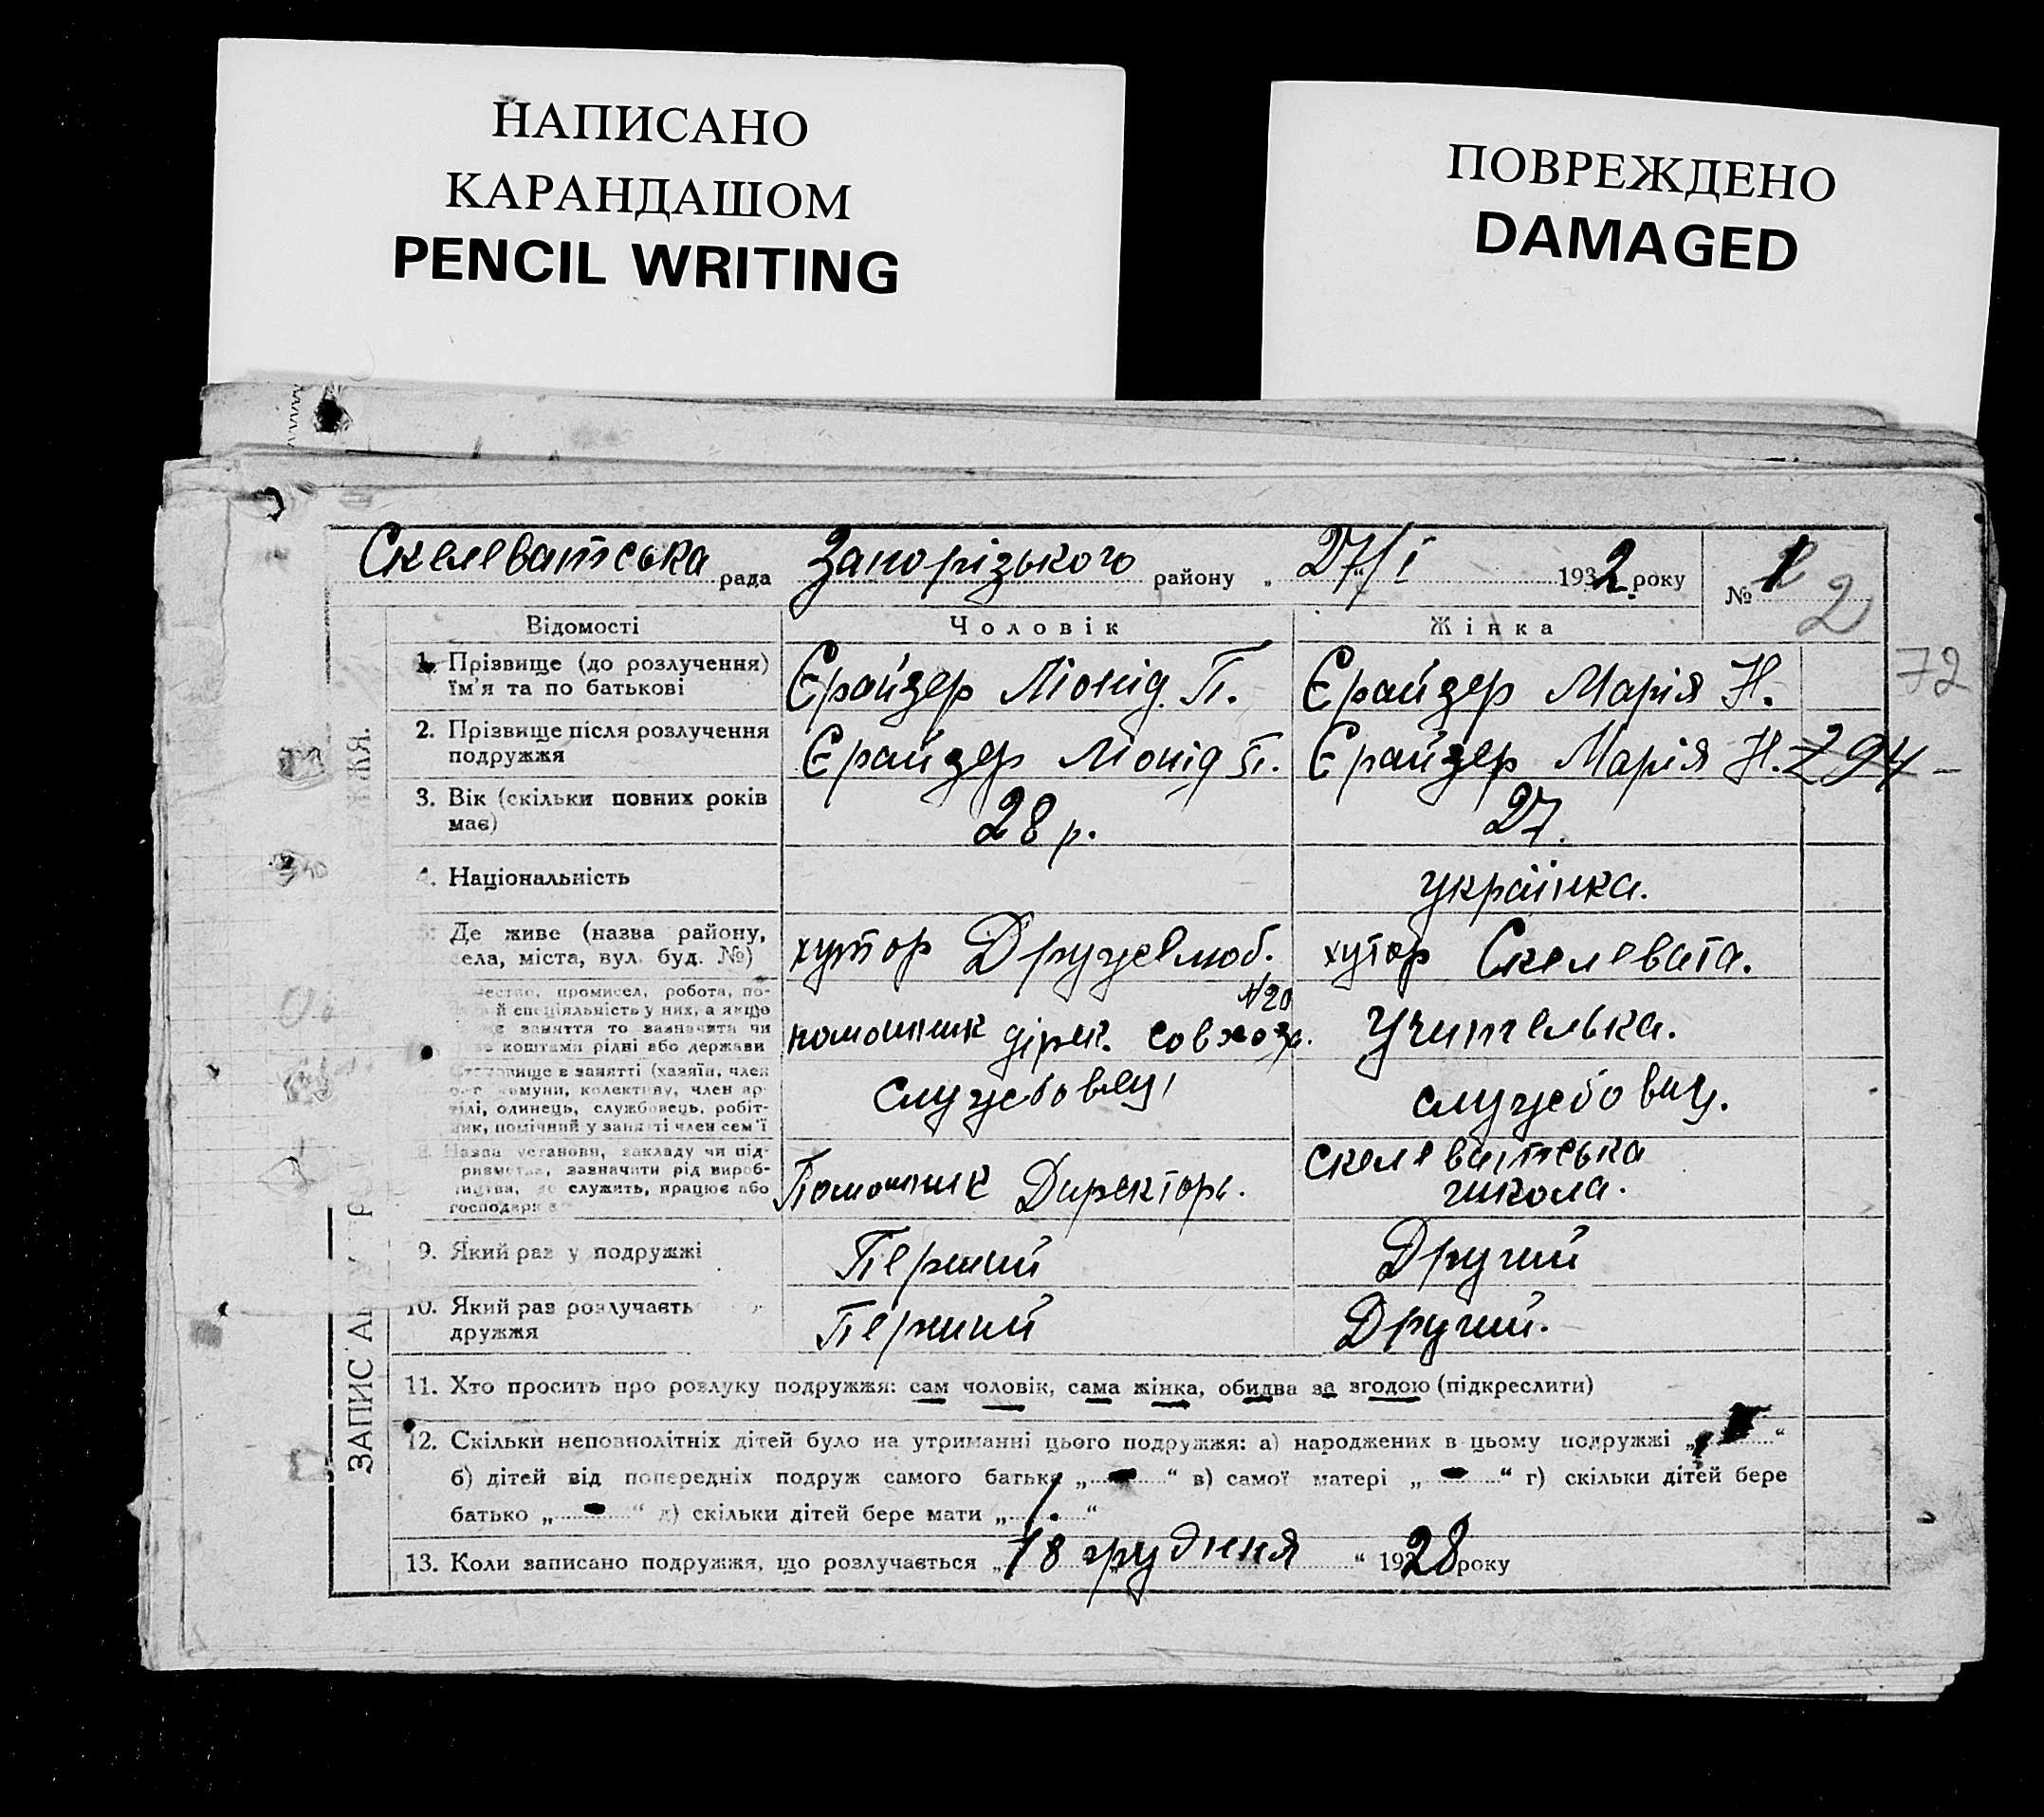 НАПИСАНО
КАРАНДАШОМ
PENCIL WRITING
ПОВРЕЖДЕНО
DAMAGED
Скелеватська рада Запорізького району „27/I 1932 року № 1
2
72
Відомості Чоловік Жінка
1. Прізвище (до розлучення) Єрайзер Ліонід П. Єрайзер Марія Н.
їм'я та по батькові
2. Прізвище після розлучення Єрайзер Ліонід П. Єрайзер Марія Н. 294 –
подружжя
3. Вік (скільки повних років 28 р. 27.
має)
4. Національність українка.
5. Де живе (назва району, хутор Дружелюб. хутор Скелевата.
села, міста, вул. буд. №)
промисел, робота, по- №20
й спеціяльність у них, а якщо помошник дірек. совхоза. Учителька.
заняття то зазначити чи
коштами рідні або держави
в занятті (хазяїн, член службовец, службовиц.
комуни, колективу, член ар-
тілі, одинець, службовець, робіт-
ник, помічний у занятті член сем'ї
Назва установи, закладу чи під- Скелеватська
зазначити рід вироб- Помошник Директора. школа.
служить, працює або
9. Який раз у подружжі Перший Другий
10. Який раз розлучаєть Перший Другий.
дружжя
11. Хто просить про розлуку подружжя: сам чоловік, сама жінка, обидва за згодою (підкреслити)
12. Скільки неповнолітніх дітей було на утриманні цього подружжя: а) народжених в цьому подружжі „ “
б) дітей від попередніх подруж самого батька „ – “ в) самої матері „ – “ г) скільки дітей бере
батько „ – “ д) скільки дітей бере мати „ 1. “
13. Коли записано подружжя, що розлучається „18 грудння “ 1928 року
ЗАПИС АК
ЖЖЯ.